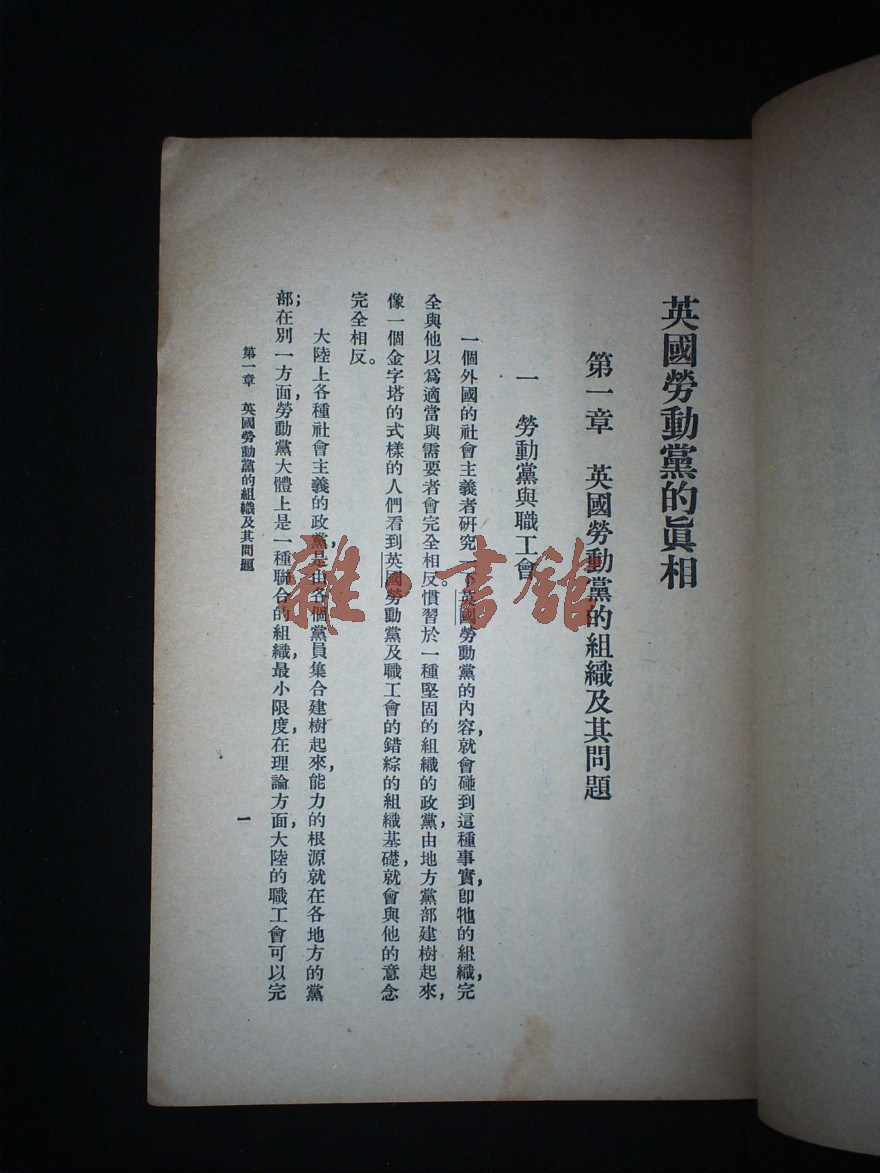 英國勞動黨的眞相
第一章 英國勞動黨的組織及其問題
一 勞動黨與職工會
一個外國的社會主義者研究一下英國勞動黨的內容，就會碰到這種事實，卽牠的組織，完
全與他以爲適當與需要者會完全相反。慣習於一種堅固的組織的政黨，由地方黨部建樹起來，
像一個金字塔的式樣的人們看到英國勞動黨及職工會的錯綜的組織基礎，就會與他的意念
完全相反。
大陸上各種社會主義的政黨，是由各個黨員集合建樹起來，能力的根源就在各地方的黨
部；在別一方面，勞動黨大體上是一種聯合的組織，最小限度在理論方面，大陸的職工會可以完
第一章 英國勞動黨的組織及其問題
一
雜·書館